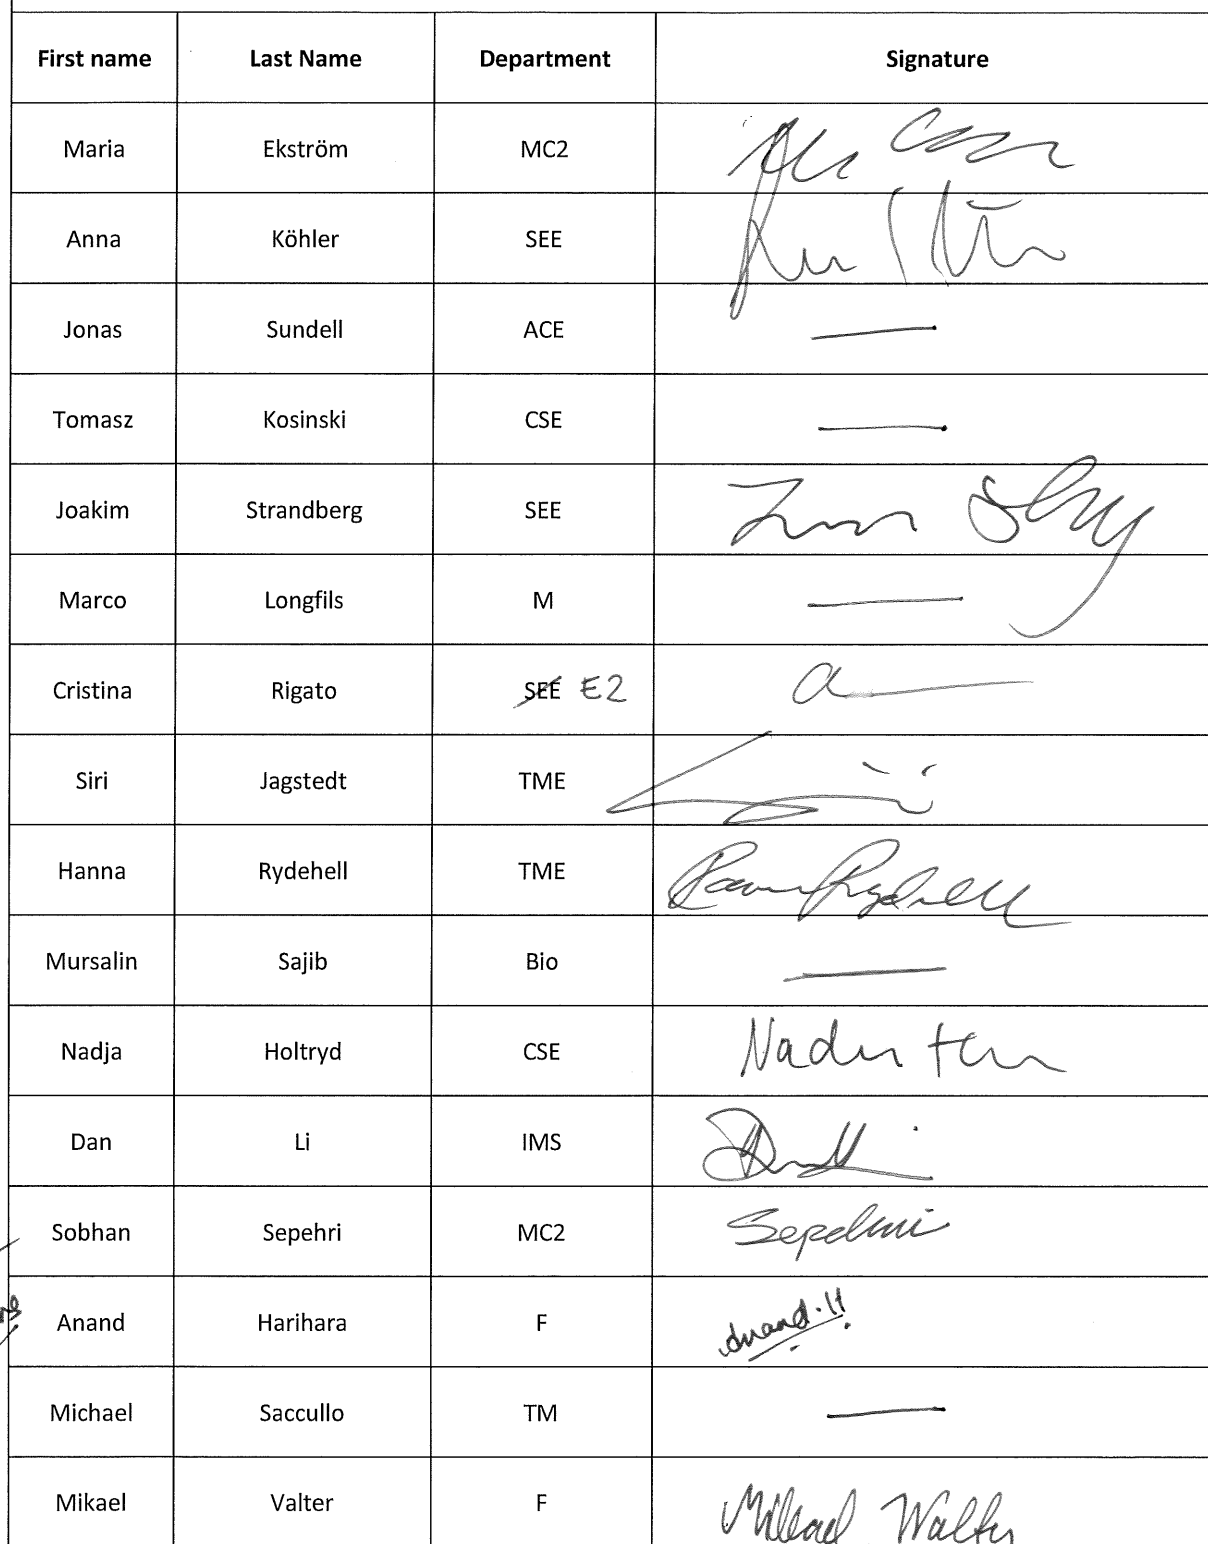 First name Last Name Department Signature
Maria Ekström MC2
Anna Köhler SEE
Jonas Sundell ACE —
Tomasz Kosinski CSE —
Joakim Strandberg SEE
Marco Longfils M —
Cristina Rigato SEE E2
Siri Jagstedt TME
Hanna Rydehell TME
Mursalin Sajib Bio —
Nadja Holtryd CSE
Dan Li IMS
Sobhan Sepehri MC2 Sepehri
Anand Harihara F Anand.!!
Michael Saccullo TM —
Mikael Valter F Mikael Walter